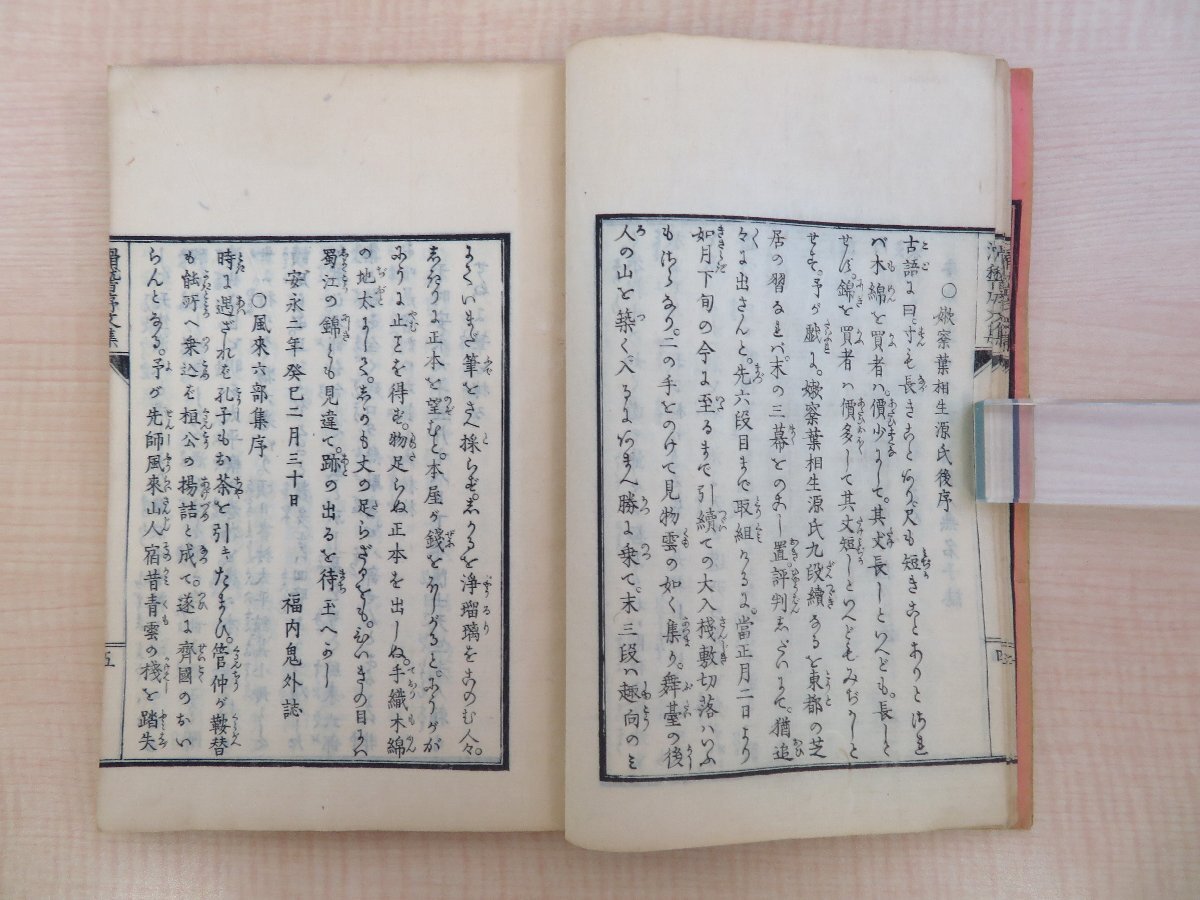 ○嫩案葉相生源氏後序
古語に曰。寸も長きことあり。尺も短きことありとされ
バ木綿を買者ハ。價少にして。其丈長しといへども。長しと
せず。錦を買者ハ價多して其丈短しといへどもみぢかしと
せず。予が戯に。嫩案葉相生源氏九段續なるを東都の芝
居の習なれバ。末の三幕をのこし置。評判したいにて。猶追
々に出さんと。先六段目まで取組けるに。當正月二日より
如月下旬の今に至るまで引續ての大入棧敷切落ハいふ
もさらなり。二の手とのけて見物雲の如く集り。舞臺の後
人の山を築く。
勝に乗て。末三段ハ趣向のミ
いまだ筆をさへ採らず。しかるを浄瑠璃をこのむ人々。
しきりに正本を望むと。本屋が錢をほしがると。ふうがが
ふりに正ことを得ず。物足らぬ正本を出しぬ。手織木綿
の地太にして。しかも丈の足らざるとも。ひいきの目にハ
蜀江の錦とも見違て。跡の出るを待玉へかし
安永二年癸巳二月三十日　福内鬼外誌
○風來六部集序
時に遇ざれバ孔子もお茶を引きたまひ。管仲が鞍替
も能所へ乗込バ桓公の揚詰と成て。遂に齊國のおい
らんとなる。予が先師風來山人宿昔青雲の棧を踏失
滑稽序文集
五